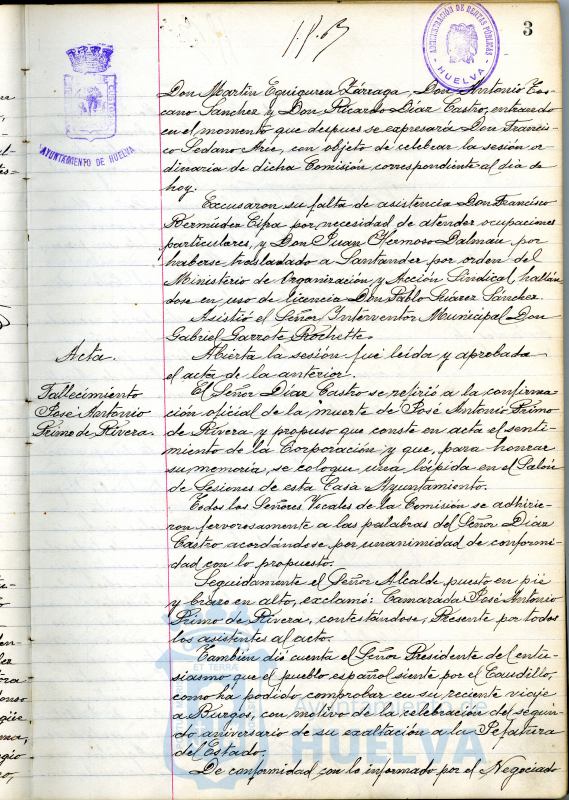 3
ADMINISTRACIÓN DE RENTAS PÚBLICAS
HUELVA
AYUNTAMIENTO DE HUELVA
Don Martín Eguiguren Zárraga, Don Antonio Tos-
cano Sanchez y Don Ricardo Díaz Castro, entrando
en el momento que despues se expresará Don Francis-
co Sedano Arce, con objeto de celebrar la sesión or-
dinaria de dicha Comisión correspondiente al día de
hoy.
Excusaron su falta de asistencia Don Francisco
Bermúdez Cipa por necesidad de atender ocupaciones
particulares, y Don Juan Hermoso Dalmau por
haberse trasladado a Santander por orden del
Ministerio de Organización y Acción Sindical, hallán-
dose en uso de licencia Don Pablo Suárez Sánchez.
Asistió el Señor Interventor Municipal Don
Gabriel Garrote Rochette.
Acta.
Abierta la sesión fué leída y aprobada
el acta de la anterior.
Fallecimiento
José Antonio
Primo de Rivera.
El Señor Díaz Castro se refirió a la confirma-
ción oficial de la muerte de José Antonio Primo
de Rivera y propuso que conste en acta el senti-
miento de la Corporación y que, para honrar
su memoria, se coloque una lápida en el Salón
de Sesiones de esta Casa Ayuntamiento.
Todos los Señores Vocales de la Comisión se adhirie-
ron fervorosamente a las palabras del Señor Díaz
Castro acordándose por unanimidad de conformi-
dad con lo propuesto.
Seguidamente el Señor Alcalde puesto en pié
y brazo en alto, exclamó: Camarada José Antonio
Primo de Rivera, contestándose, Presente por todos
los asistentes al acto.
También dió cuenta el Señor Presidente del entu-
siasmo que el pueblo español siente por el Caudillo,
como ha podido comprobar en su reciente viaje
a Burgos, con motivo de la celebración del segun-
do aniversario de su exaltación a la Jefatura
del Estado.
De conformidad con lo informado por el Negociado
ET TERRÆ
Ayuntamiento de
HUELVA